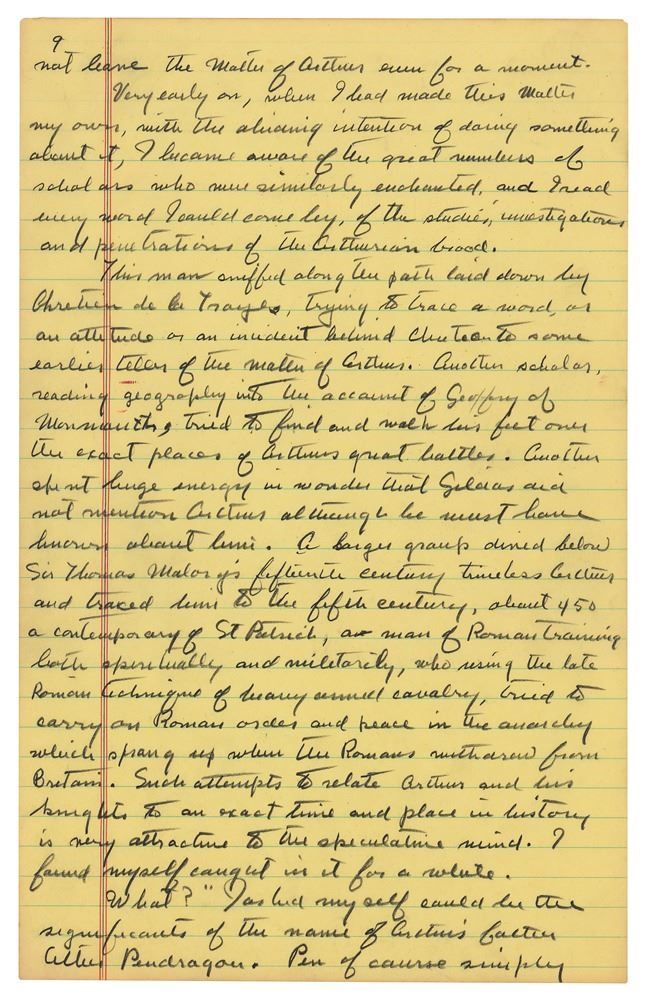 9
not leave the Matter of Arthur even for a moment.
Very early on, when I had made this Matter
my own, with the abiding intention of doing something
about it, I became aware of the great numbers of
scholars who were similarly enchanted, and I read
every word I could come by, of the studies, investigations
and penetrations of the Arthurian
This man sniffed along the path laid down by
Chretien de la Troyes, trying to trace a word, or
an attitude or an incident behind Chretien to some
earlier teller of the matter of Arthur. Another scholar,
reading geography into the account of Geoffry of
Monmouth, tried to find and walk his feet over
the exact places of Arthurs great battles. Another
spent huge energy in wonder that Gildas did
not mention Arthur although he must have
known about him. A larger group dived below
Sir Thomas Malory's fifteenth century timeless Arthur
and traced him to the fifth century, about 450
a contemporary of St Patrick, a man of Roman training
both spiritually and militarily, who using the late
Roman technique of heavy armed cavalry, tried to
carry on Roman order and peace in the anarchy
which sprang up when the Romans withdrew from
Britain. Such attempts to relate Arthur and his
knights to an exact time and place in history
is very attractive to the speculative mind. I
found myself caught in it for a while.
What?" I asked myself could be the
significants of the name of Arthur's father
Uther Pendragon. Pen of course simply